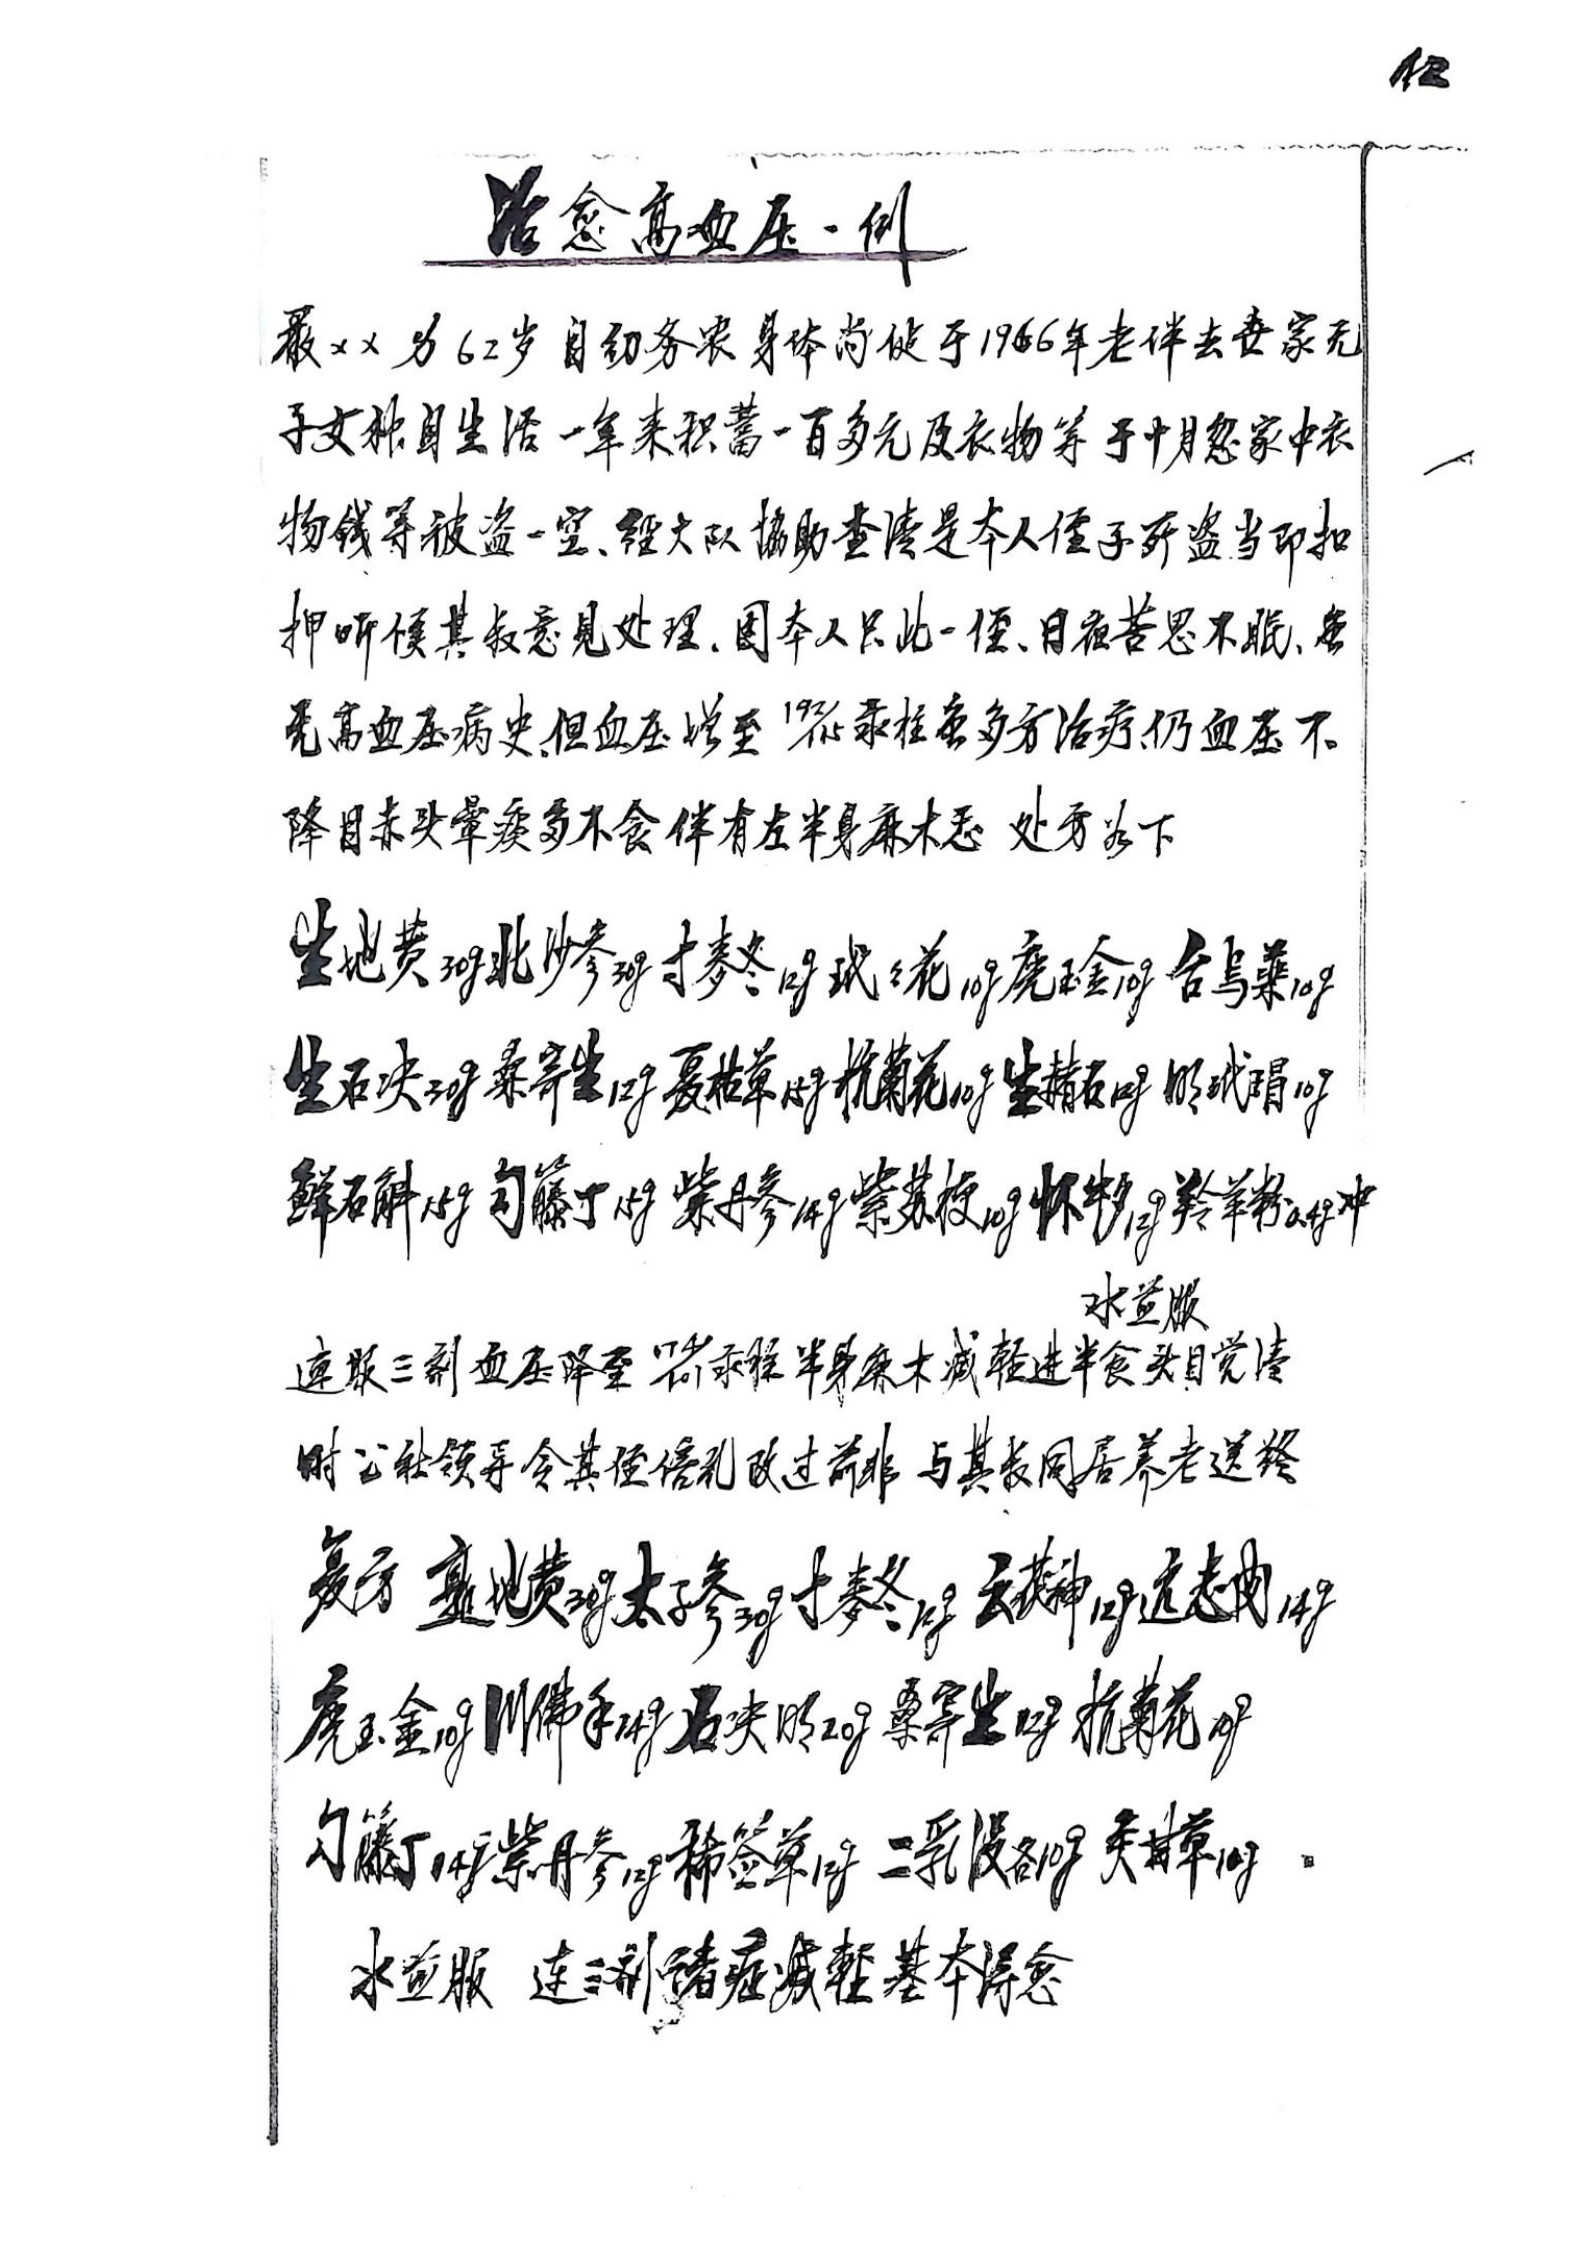 12
治愈高血压一例
聂××男62岁自幼务农身体尚健于1966年老伴去世家无
子女独自生活一年来积蓄一百多元及衣物等于十月忽家中衣
物钱等被盗一空、经大队协助查清是本人侄子所盗当即扣
押听候其叔意见处理.因本人只此一侄、日夜苦思不眠、虽
无高血压病史.但血压增至汞柱虽多方治疗.仍血压不
降目赤头晕痰多不食伴有左半身麻木 处方如下
生地黄30g北沙参30g寸麦冬12g玳々花10g虎玉金10g台乌药10g
生石决30g桑寄生12g夏枯草15g杭菊花10g生赭石12g明玳瑁10g
鲜石斛15g勾藤丁15g紫丹参14g紫苏梗10g怀牛夕12g羚羊粉0.4g冲
水煎服
连服三剂血压降至汞柱半身麻木减轻进半食头目觉清
时公社领导令其侄悟禮改过前非 与其叔同居养老送终
复方 熟地黄30g太子参30g寸麦冬12g云茯神12g远志肉14g
虎玉金10g川佛手14g石决明20g桑寄生12g杭菊花10g
勾藤丁14g紫丹参12g稀签草12g二乳没各10g炙甘草10g.
水煎服 连三剂诸症减轻基本得愈